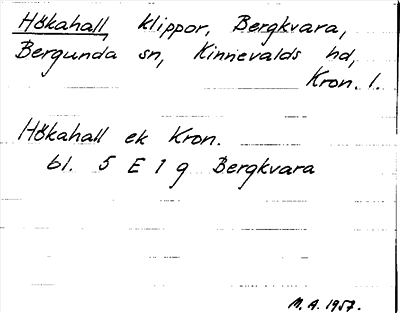 Hökahall, klippor, Bergkvara,
Bergunda sn, Kinnevalds hd,
Kron. l.
Hökahall ek Kron.
bl. 5 E 1 g Bergkvara
M. A. 1957.